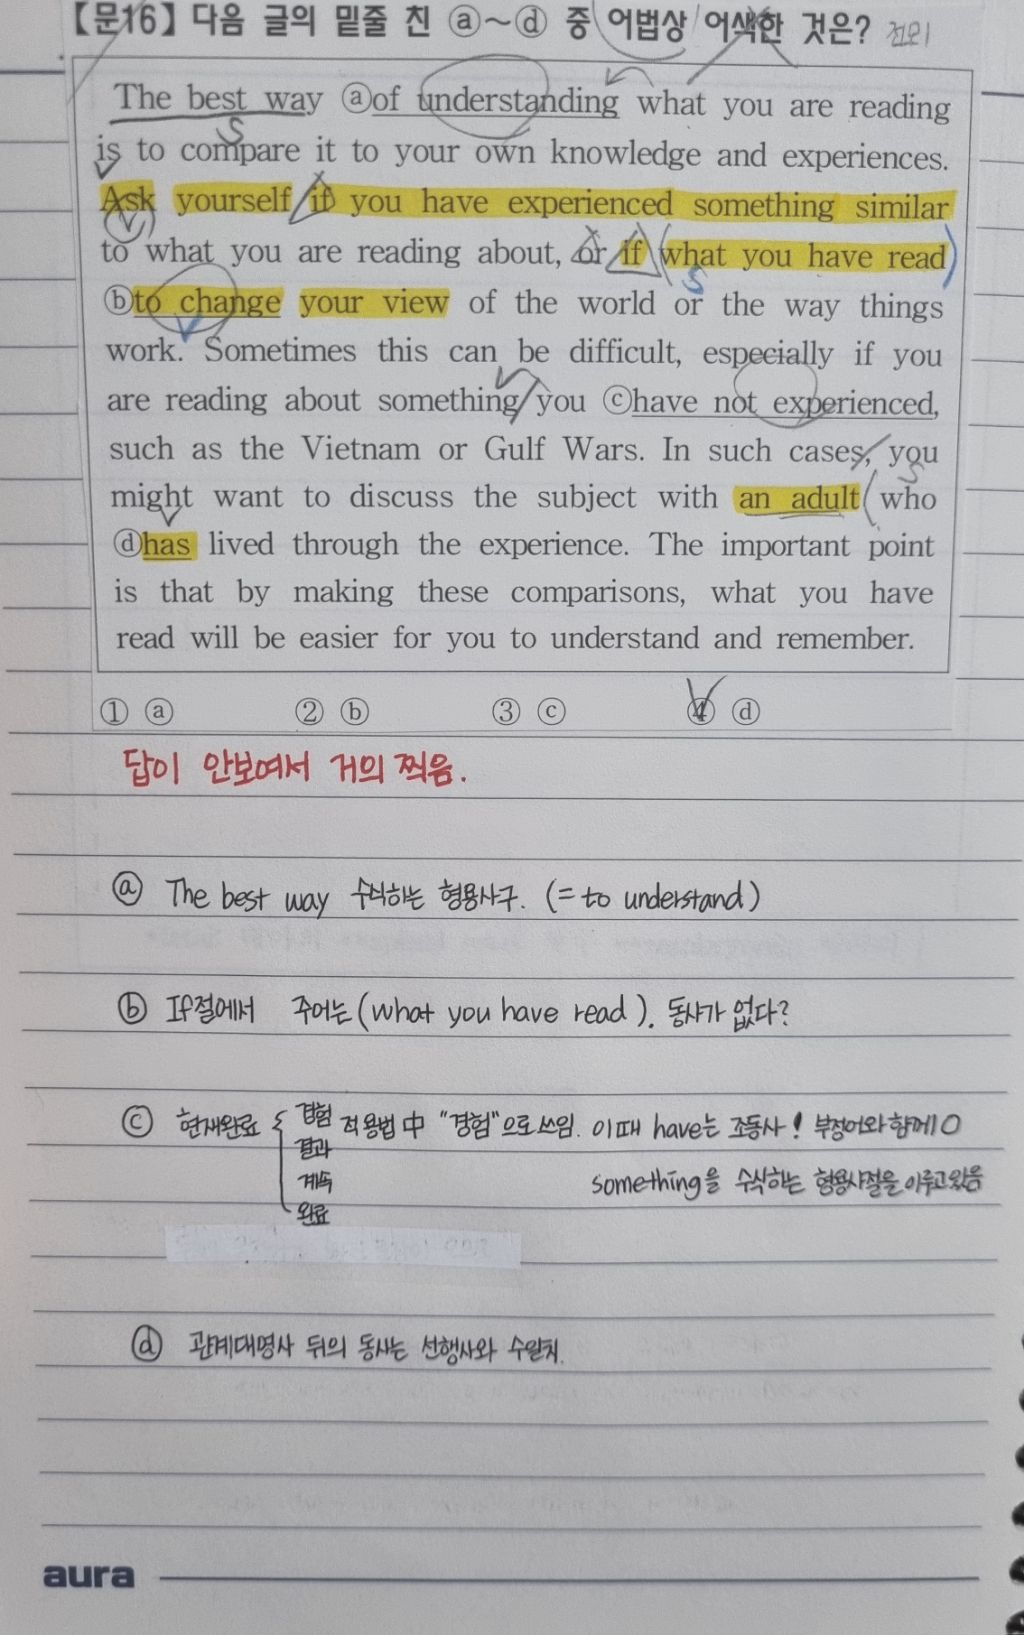 【문16】 다음 글의 밑줄 친 ⓐ～ⓓ 중 어법상 어색한 것은?
The best way ⓐof understanding what you are reading
is to compare it to your own knowledge and experiences.
Ask yourself if you have experienced something similar
to what you are reading about, or if what you have read
ⓑto change your view of the world or the way things
work. Sometimes this can be difficult, especially if you
are reading about something you ⓒhave not experienced,
such as the Vietnam or Gulf Wars. In such cases, you
might want to discuss the subject with an adult who
ⓓhas lived through the experience. The important point
is that by making these comparisons, what you have
read will be easier for you to understand and remember.
① ⓐ ② ⓑ ③ ⓒ ④ ⓓ
답이 안보여서 거의 찍음.
ⓐ The best way 수식하는 형용사구. (= to understand)
ⓑ If절에서 주어는 (what you have read). 동사가 없다?
ⓒ 현재완료 { 경험 적용법 中 "경험"으로 쓰임. 이때 have는 조동사! 부정어와 함께 O
결과
계속 something을 수식하는 형용사절을 이루고 있음
완료
ⓓ 관계대명사 뒤의 동사는 선행사와 수일치.
aura